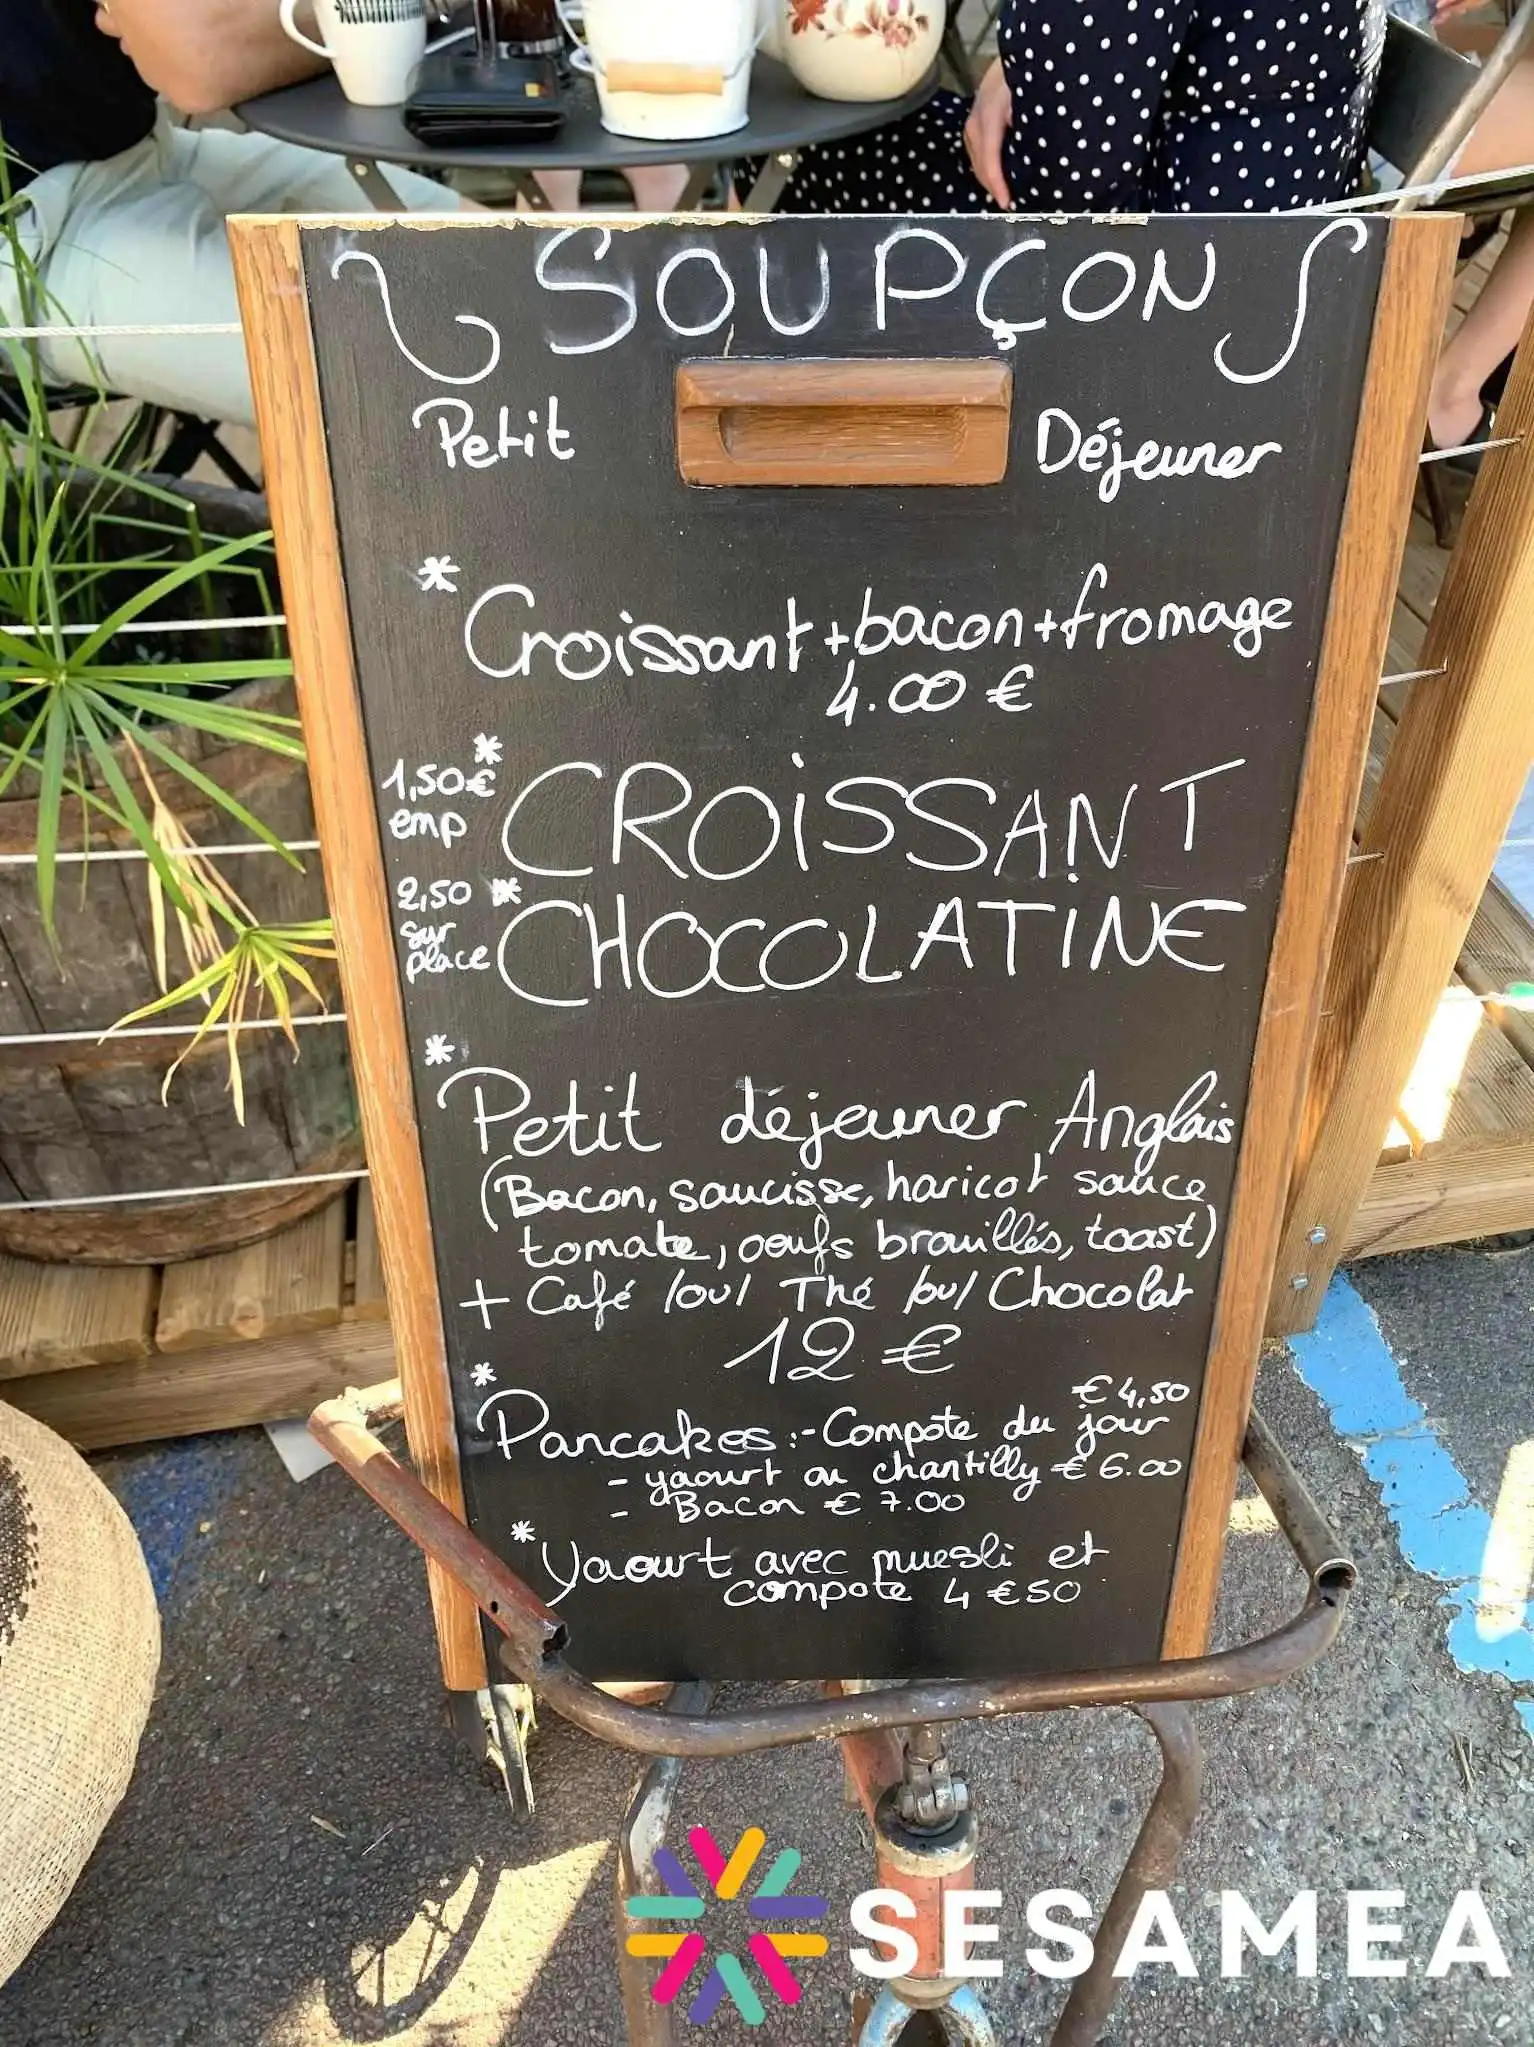 SOUPÇON
Petit Déjeuner
* Croissant+bacon+fromage
4.00 €
1,50€ emp * CROiSSANT
2,50 sur place * CHOCOLATiNE
* Petit déjeuner Anglais
(Bacon, saucisse, haricot sauce
tomate, oeufs brouillés, toast)
+ Café /ou/ Thé /ou/ Chocolat
12 €
€ 4,50
* Pancakes :- Compote du jour
- yaourt ou chantilly € 6.00
- Bacon € 7.00
* Yaourt avec muesli et
compote 4 €50
SESAMEA